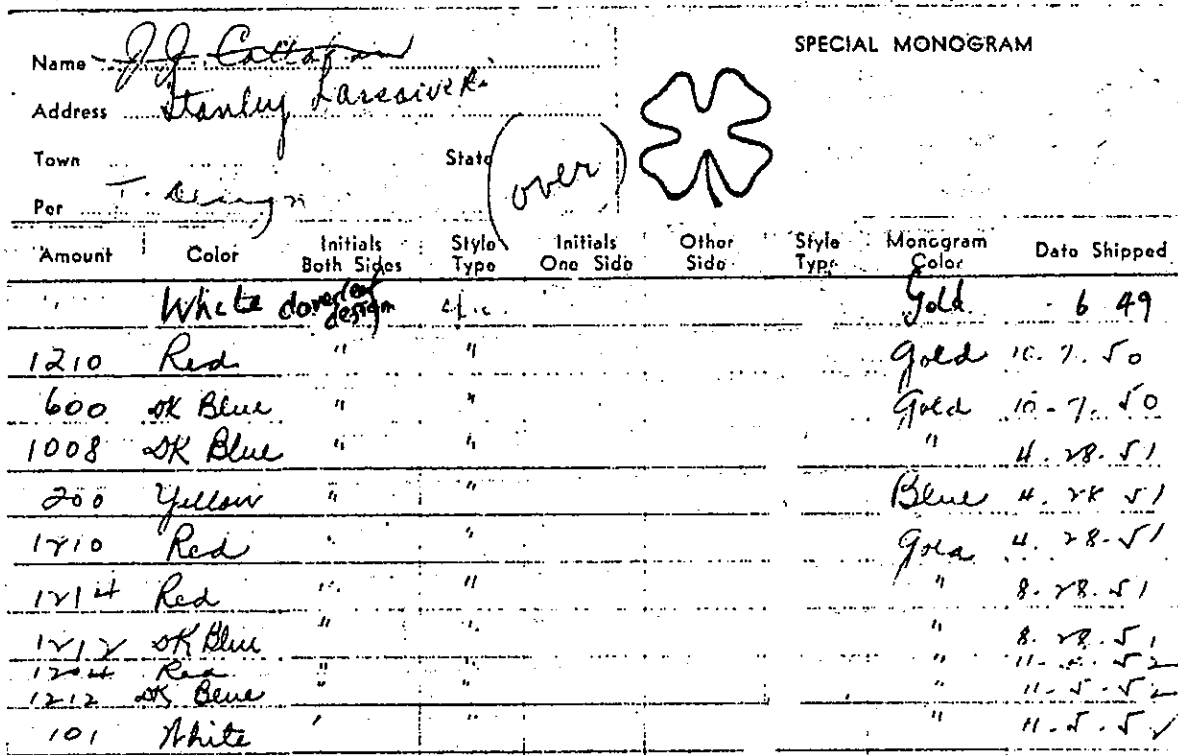 SPECIAL MONOGRAM
Name J. J. Callahan
Address Stanley
Town State (over)
Per T.
Amount Color Initials Both Sides Style Type Initials One Side Other Side Style Type Monogram Color Date Shipped
" White cloverleaf design Gold 6 49
1210 Red " " Gold 10. 7. 50
600 DK Blue " " Gold 10-7. 50
1008 DK Blue " " " 4. 28. 51
200 Yellow " " Blue 4. 28 51
1210 Red " " Gold 4. 28. 51
1214 Red " " " 8. 28. 51
1212 DK Blue " " " 8. 28. 51
1204 Red " " " 11- 5. 52
1212 DK Blue " " " 11-5-52
101 White " " " 11.5.52